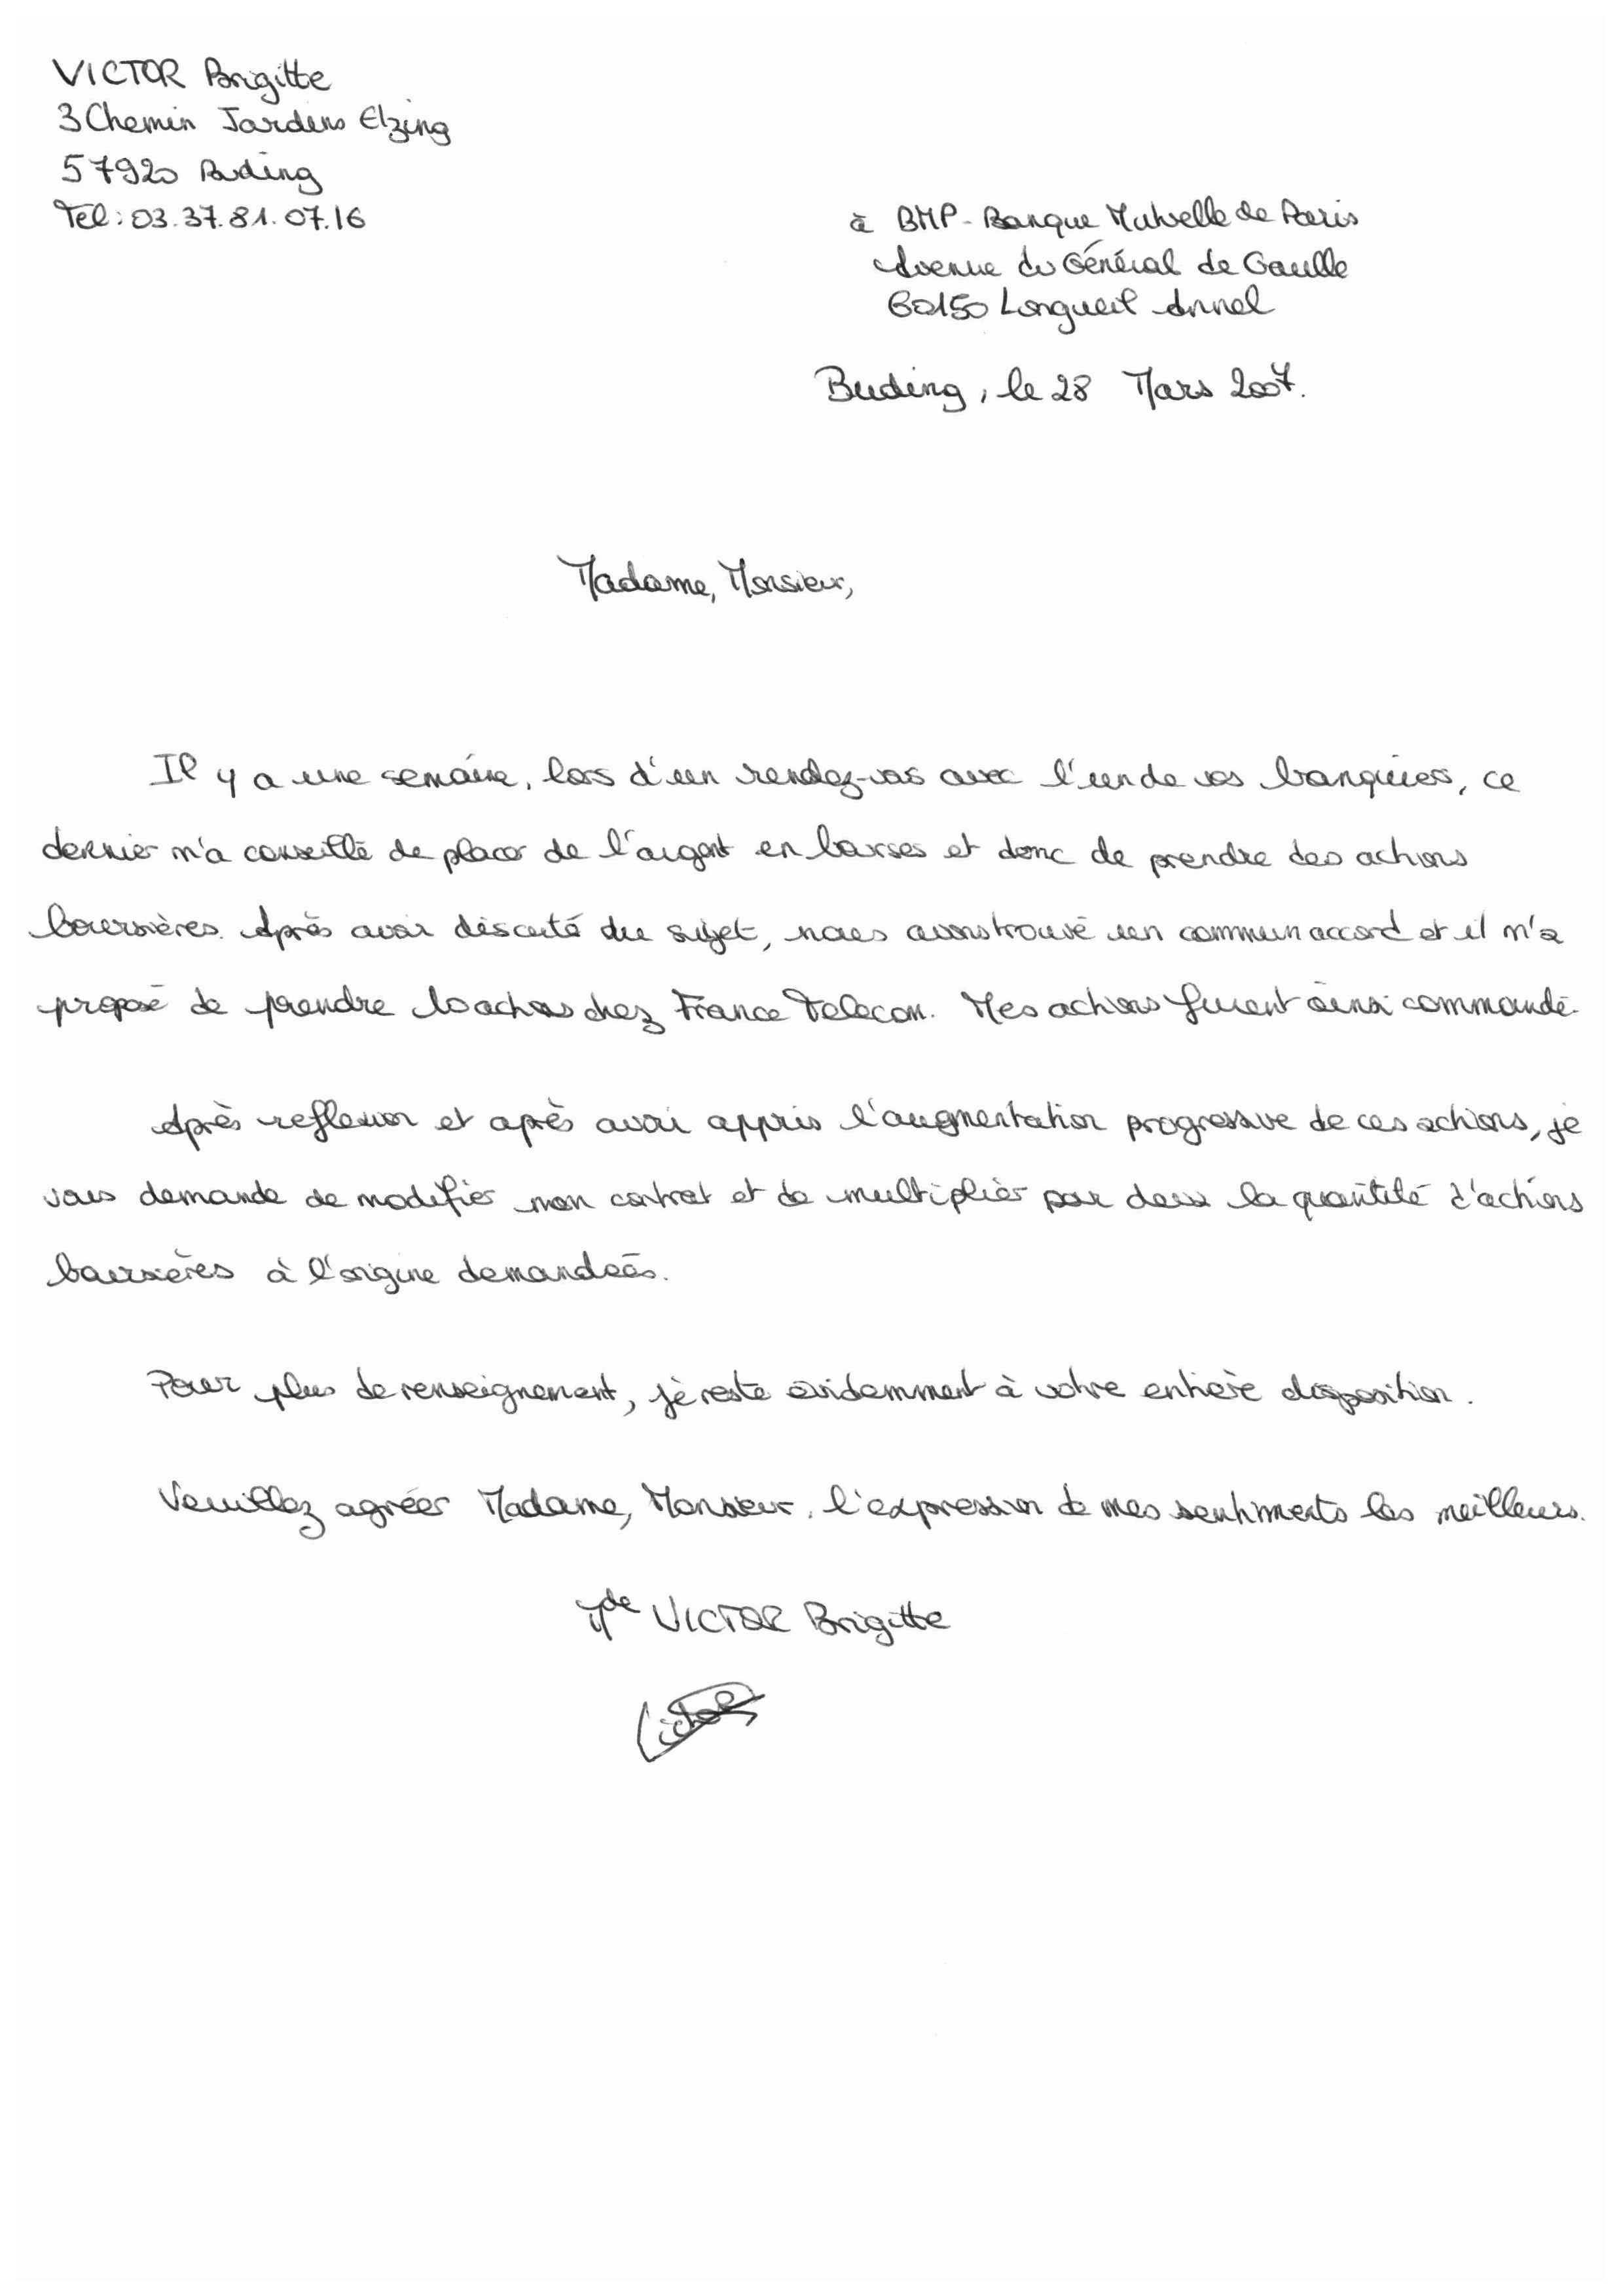 VICTOR Brigitte
3 Chemin Jardins Elzing
57920 Buding
Tel : 03.37.81.07.16
à BMP - Banque Mutuelle de Paris
Avenue du Général de Gaulle
60150 Longueil Annel
Buding, le 28 Mars 2007.
Madame, Monsieur,
Il y a une semaine, lors d'un rendez-vous avec l'un de vos banquiers, ce
dernier m'a conseillé de placer de l'argent en bourses et donc de prendre des actions
boursières. Après avoir discuté du sujet, nous avons trouvé un commun accord et il m'a
proposé de prendre 10 actions chez France Telecom. Mes actions furent ainsi commandé.
Après reflexion et après avoir appris l'augmentation progressive de ces actions, je
vous demande de modifier mon contrat et de multiplier par deux la quantité d'actions
boursières à l'origine demandées.
Pour plus de renseignement, je reste évidemment à votre entière disposition.
Veuillez agréer Madame, Monsieur, l'expression de mes sentiments les meilleurs.
Mde VICTOR Brigitte